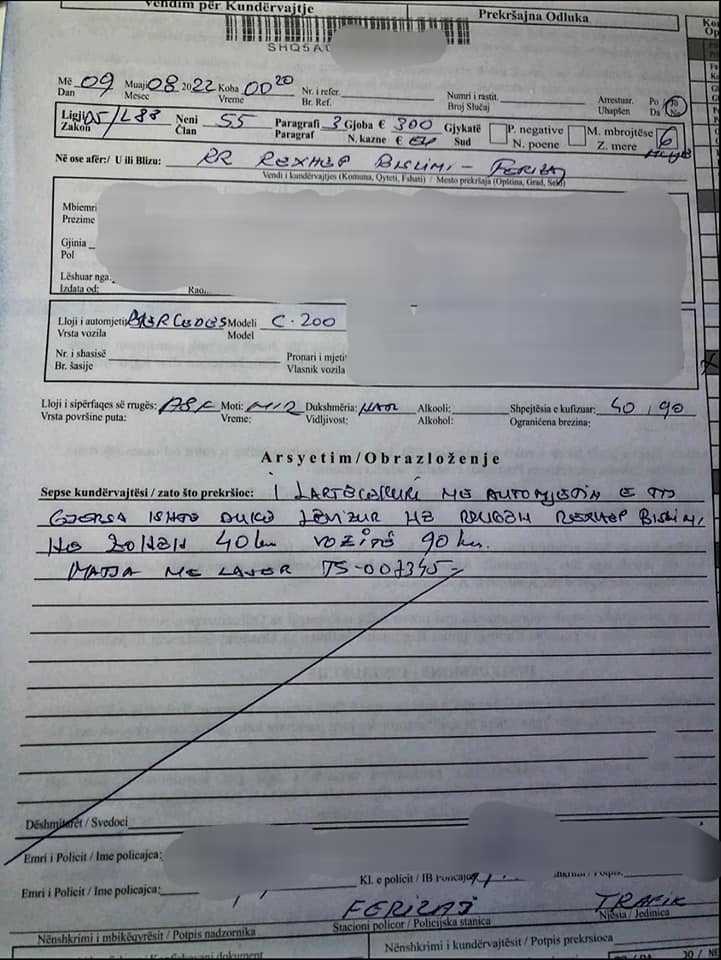 Vendim për Kundërvajtje
Prekršajna Odluka
SHQ5A0
Më 09 Muaji 08 2022 Koha 00 20 Nr. i refer. Numri i rastit. Arrestuar. Po Jo
Dan Mesec Vreme Br. Ref. Broj Slučaj Uhapšen Da Ne
Ligji 05/L88 Neni 55 Paragrafi 3 Gjoba € 300 Gjykatë P. negative M. mbrojtëse 6
Zakon Član Paragraf N. kazne € Sud N. poene Z. mere
Në ose afër:/ U ili Blizu: RR REXHEP BISLIMI - FERIZAJ
Vendi i kundërvajtjes (Komuna, Qyteti, Fshati) / Mesto prekršaja (Opština, Grad, Selo)
Mbiemri
Prezime
Gjinia
Pol
Lëshuar nga:
Izdata od:
Lloji i automjetit MERCEDES Modeli C.200
Vrsta vozila Model
Nr. i shasisë Pronari i mjetit
Br. šasije Vlasnik vozila
Lloji i sipërfaqes së rrugës: ASF Moti: MIR Dukshmëria: NAT Alkooli: Shpejtësia e kufizuar: 40, 90
Vrsta površine puta: Vreme: Vidljivost: Alkohol: Ograničena brezina:
Arsyetim/Obrazloženje
Sepse kundërvajtësi / zato što prekršioc: I LARTECEKURI ME AUTOMJETIN E TIJ
GJERSA ISHTE DUKE LEVIZUR NE RRUGEN REXHEP BISLIMI,
NE ZONEN 40 km VOZITË 90 km.
MATJA ME LASER TS-007345-
Dëshmitarët / Svedoci
Emri i Policit / Ime policajca:
Emri i Policit / Ime policajca: Kl. e policit / IB Policajca
FERIZAJ TRAFIK
Nënshkrimi i mbikëqyrësit / Potpis nadzornika Stacioni policor / Policijska stanica Njësia / Jedinica
Nënshkrimi i kundërvajtësit / Potpis prekrsioca